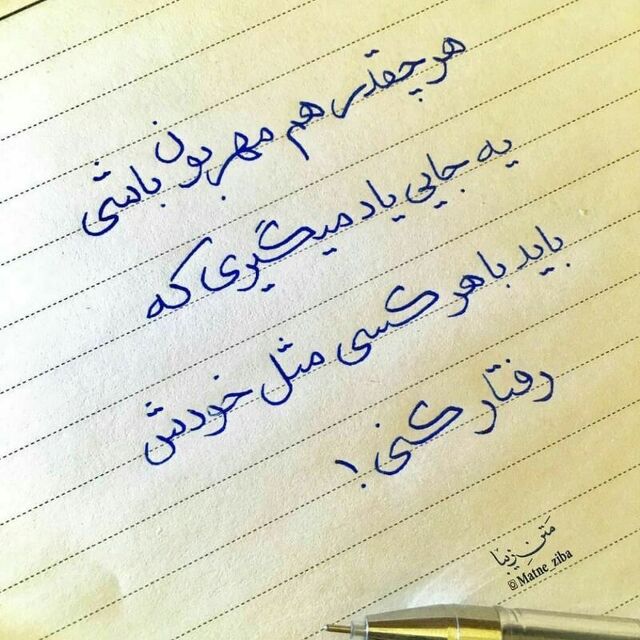 هر چقدر هم مهربون باشی
یه جایی یاد میگیری که
باید با هر کسی مثل خودش
رفتار کنی!
متن زیبا
© Matne_ziba